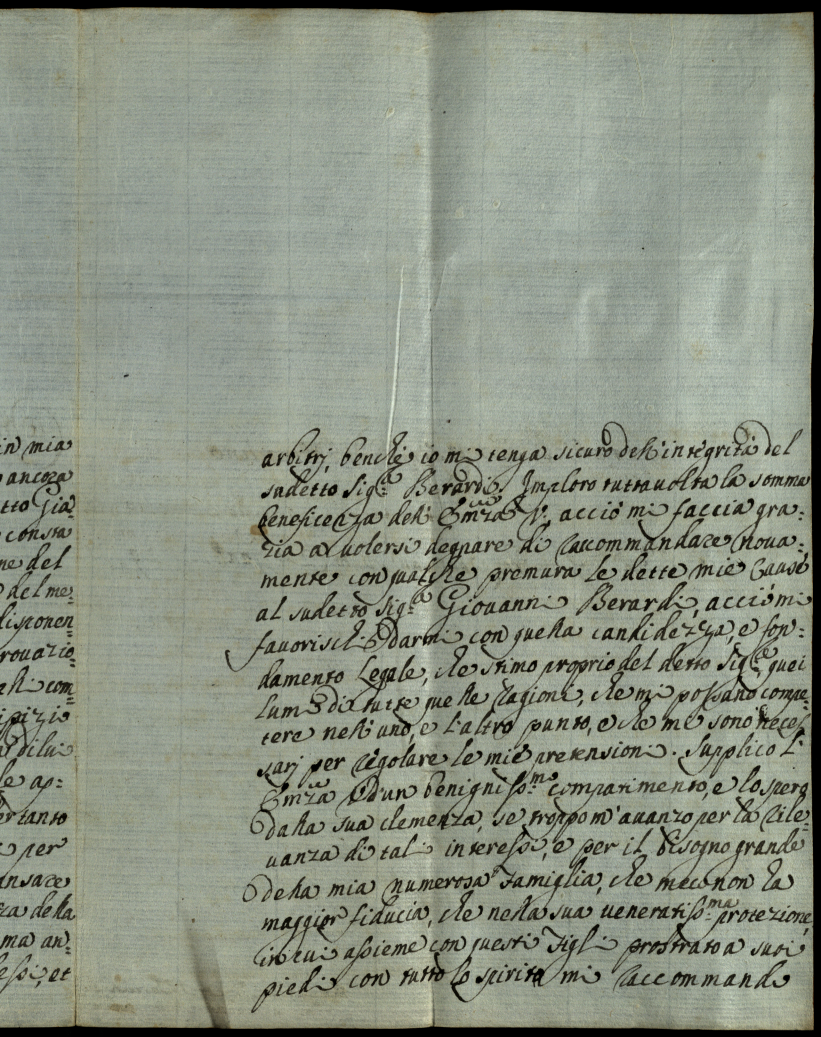 in mia
ancora
tto Gia
consta
ne del
del me=
disponen=
rovazio=
elli com=
di lui
le ap=
ertanto
per
ansare
za della
ma an=
essi, et
arbitrj, benche io mi tenga sicuro dell'integrità del
sudetto Sig.re Berardi. Imploro tuttavolta la somma
beneficenza dell'Em̃za V. acciò mi faccia gra=
zia a volersi degnare di raccommandare nova=
mente con qualche premura le dette mie Cause
al sudetto Sig.re Giovanni Berardi, acciò mi
favorischi darmi con quella candidezza, e fon=
damento Legale, che stimo proprio del detto Sig.re, quei
lumi di tutte quelle ragioni, che mi possano compe=
tere nell'uno, e l'altro punto, e che mi sono neces=
sarj per regolare le mie pretensioni. Supplico l'
Em̃za V. d'un benigniss.mo compatimento, e lo spero
dalla sua clemenza, se troppo m'avanzo per la rile=
vanza di tali interessi, e per il bisogno grande
della mia numerosa Famiglia, che meco non ha
maggior fiducia, che nella sua veneratiss.ma protezione,
in cui assieme con questi Figli prostrato a suoi
piedi con tutto lo spirito mi raccommando